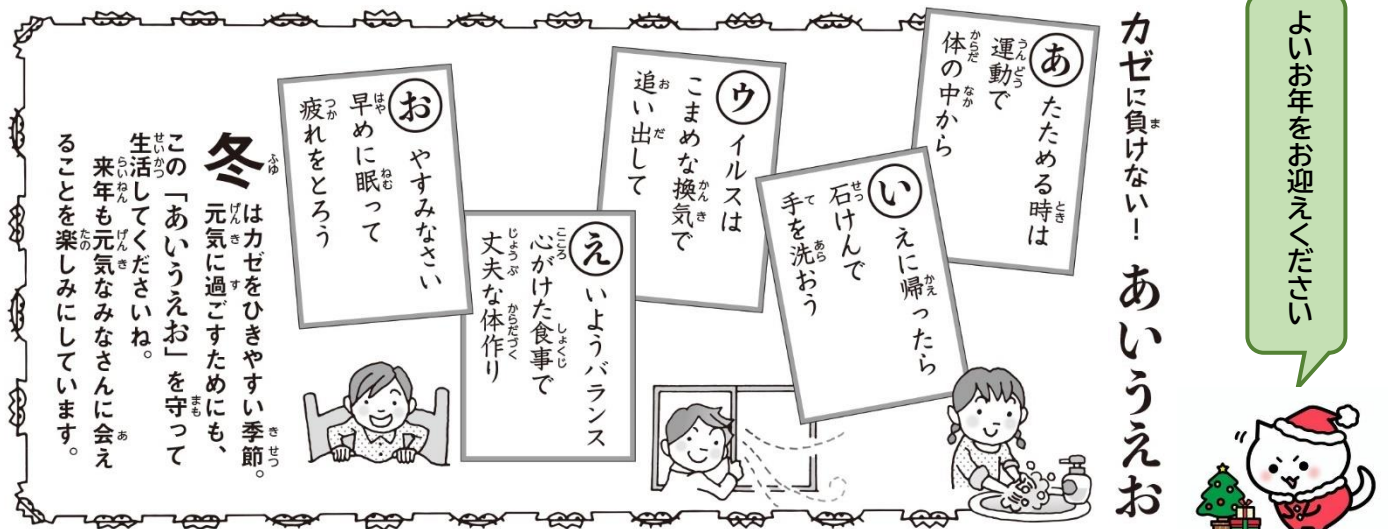 よいお年をお迎えください
カゼに負けない！ あいうえお
あたためる時は
運動で
体の中から
いえに帰ったら
石けんで
手を洗おう
ウイルスは
こまめな換気で
追い出して
えいようバランス
心がけた食事で
丈夫な体作り
おやすみなさい
早めに眠って
疲れをとろう
冬はカゼをひきやすい季節。
元気に過ごすためにも、
この「あいうえお」を守って
生活してくださいね。
来年も元気なみなさんに会え
ることを楽しみにしています。